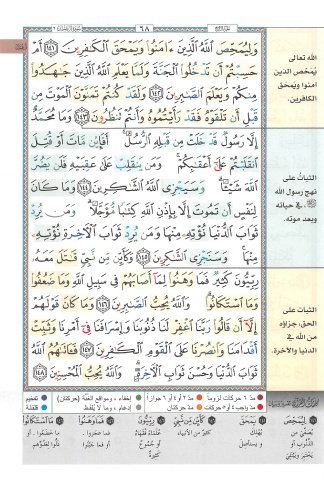 ٦٨
وَلِيُمَحِّصَ ٱللَّهُ ٱلَّذِينَ ءَامَنُوا۟ وَيَمْحَقَ ٱلْكَـٰفِرِينَ ١٤١ أَمْ
حَسِبْتُمْ أَن تَدْخُلُوا۟ ٱلْجَنَّةَ وَلَمَّا يَعْلَمِ ٱللَّهُ ٱلَّذِينَ جَـٰهَدُوا۟
مِنكُمْ وَيَعْلَمَ ٱلصَّـٰبِرِينَ ١٤٢ وَلَقَدْ كُنتُمْ تَمَنَّوْنَ ٱلْمَوْتَ مِن
قَبْلِ أَن تَلْقَوْهُ فَقَدْ رَأَيْتُمُوهُ وَأَنتُمْ تَنظُرُونَ ١٤٣ وَمَا مُحَمَّدٌ
إِلَّا رَسُولٌ قَدْ خَلَتْ مِن قَبْلِهِ ٱلرُّسُلُ ۚ أَفَإِي۟ن مَّاتَ أَوْ قُتِلَ
ٱنقَلَبْتُمْ عَلَىٰٓ أَعْقَـٰبِكُمْ ۚ وَمَن يَنقَلِبْ عَلَىٰ عَقِبَيْهِ فَلَن يَضُرَّ
ٱللَّهَ شَيْـًٔا ۗ وَسَيَجْزِى ٱللَّهُ ٱلشَّـٰكِرِينَ ١٤٤ وَمَا كَانَ
لِنَفْسٍ أَن تَمُوتَ إِلَّا بِإِذْنِ ٱللَّهِ كِتَـٰبًا مُّؤَجَّلًا ۗ وَمَن يُرِدْ
ثَوَابَ ٱلدُّنْيَا نُؤْتِهِۦ مِنْهَا وَمَن يُرِدْ ثَوَابَ ٱلْـَٔاخِرَةِ نُؤْتِهِۦ
مِنْهَا ۚ وَسَنَجْزِى ٱلشَّـٰكِرِينَ ١٤٥ وَكَأَيِّن مِّن نَّبِىٍّ قَـٰتَلَ مَعَهُۥ
رِبِّيُّونَ كَثِيرٌ فَمَا وَهَنُوا۟ لِمَآ أَصَابَهُمْ فِى سَبِيلِ ٱللَّهِ وَمَا ضَعُفُوا۟
وَمَا ٱسْتَكَانُوا۟ ۗ وَٱللَّهُ يُحِبُّ ٱلصَّـٰبِرِينَ ١٤٦ وَمَا كَانَ قَوْلَهُمْ
إِلَّآ أَن قَالُوا۟ رَبَّنَا ٱغْفِرْ لَنَا ذُنُوبَنَا وَإِسْرَافَنَا فِىٓ أَمْرِنَا وَثَبِّتْ
أَقْدَامَنَا وَٱنصُرْنَا عَلَى ٱلْقَوْمِ ٱلْكَـٰفِرِينَ ١٤٧ فَـَٔاتَىٰهُمُ ٱللَّهُ
ثَوَابَ ٱلدُّنْيَا وَحُسْنَ ثَوَابِ ٱلْـَٔاخِرَةِ ۗ وَٱللَّهُ يُحِبُّ ٱلْمُحْسِنِينَ ١٤٨
الله تعالى
يُمَحّص الذين
آمنوا ويمحق
الكافرين.
الثبات على
نهج رسول الله
ﷺ، في حياته
وبعد موته.
الثبات على
الحق، جزاؤه
من الله في
الدنيا والآخرة.
مدّ ٦ حركات لزوماً
مدّ ٢ أو ٤ أو ٦ جوازاً
إخفاء، ومواقع الغنّة (حركتان)
تفخيم
مدّ واجب ٤ أو ٥ حركات
مدّ حركتان
إدغام، وما لا يُلفَظ
قلقلة
لِيُمَحِّصَ
يَمْحَقَ
كَأَيِّن مِّن نَّبِىٍّ
رِبِّيُّونَ
فَمَا وَهَنُوا
مَا ٱسْتَكَانُوا